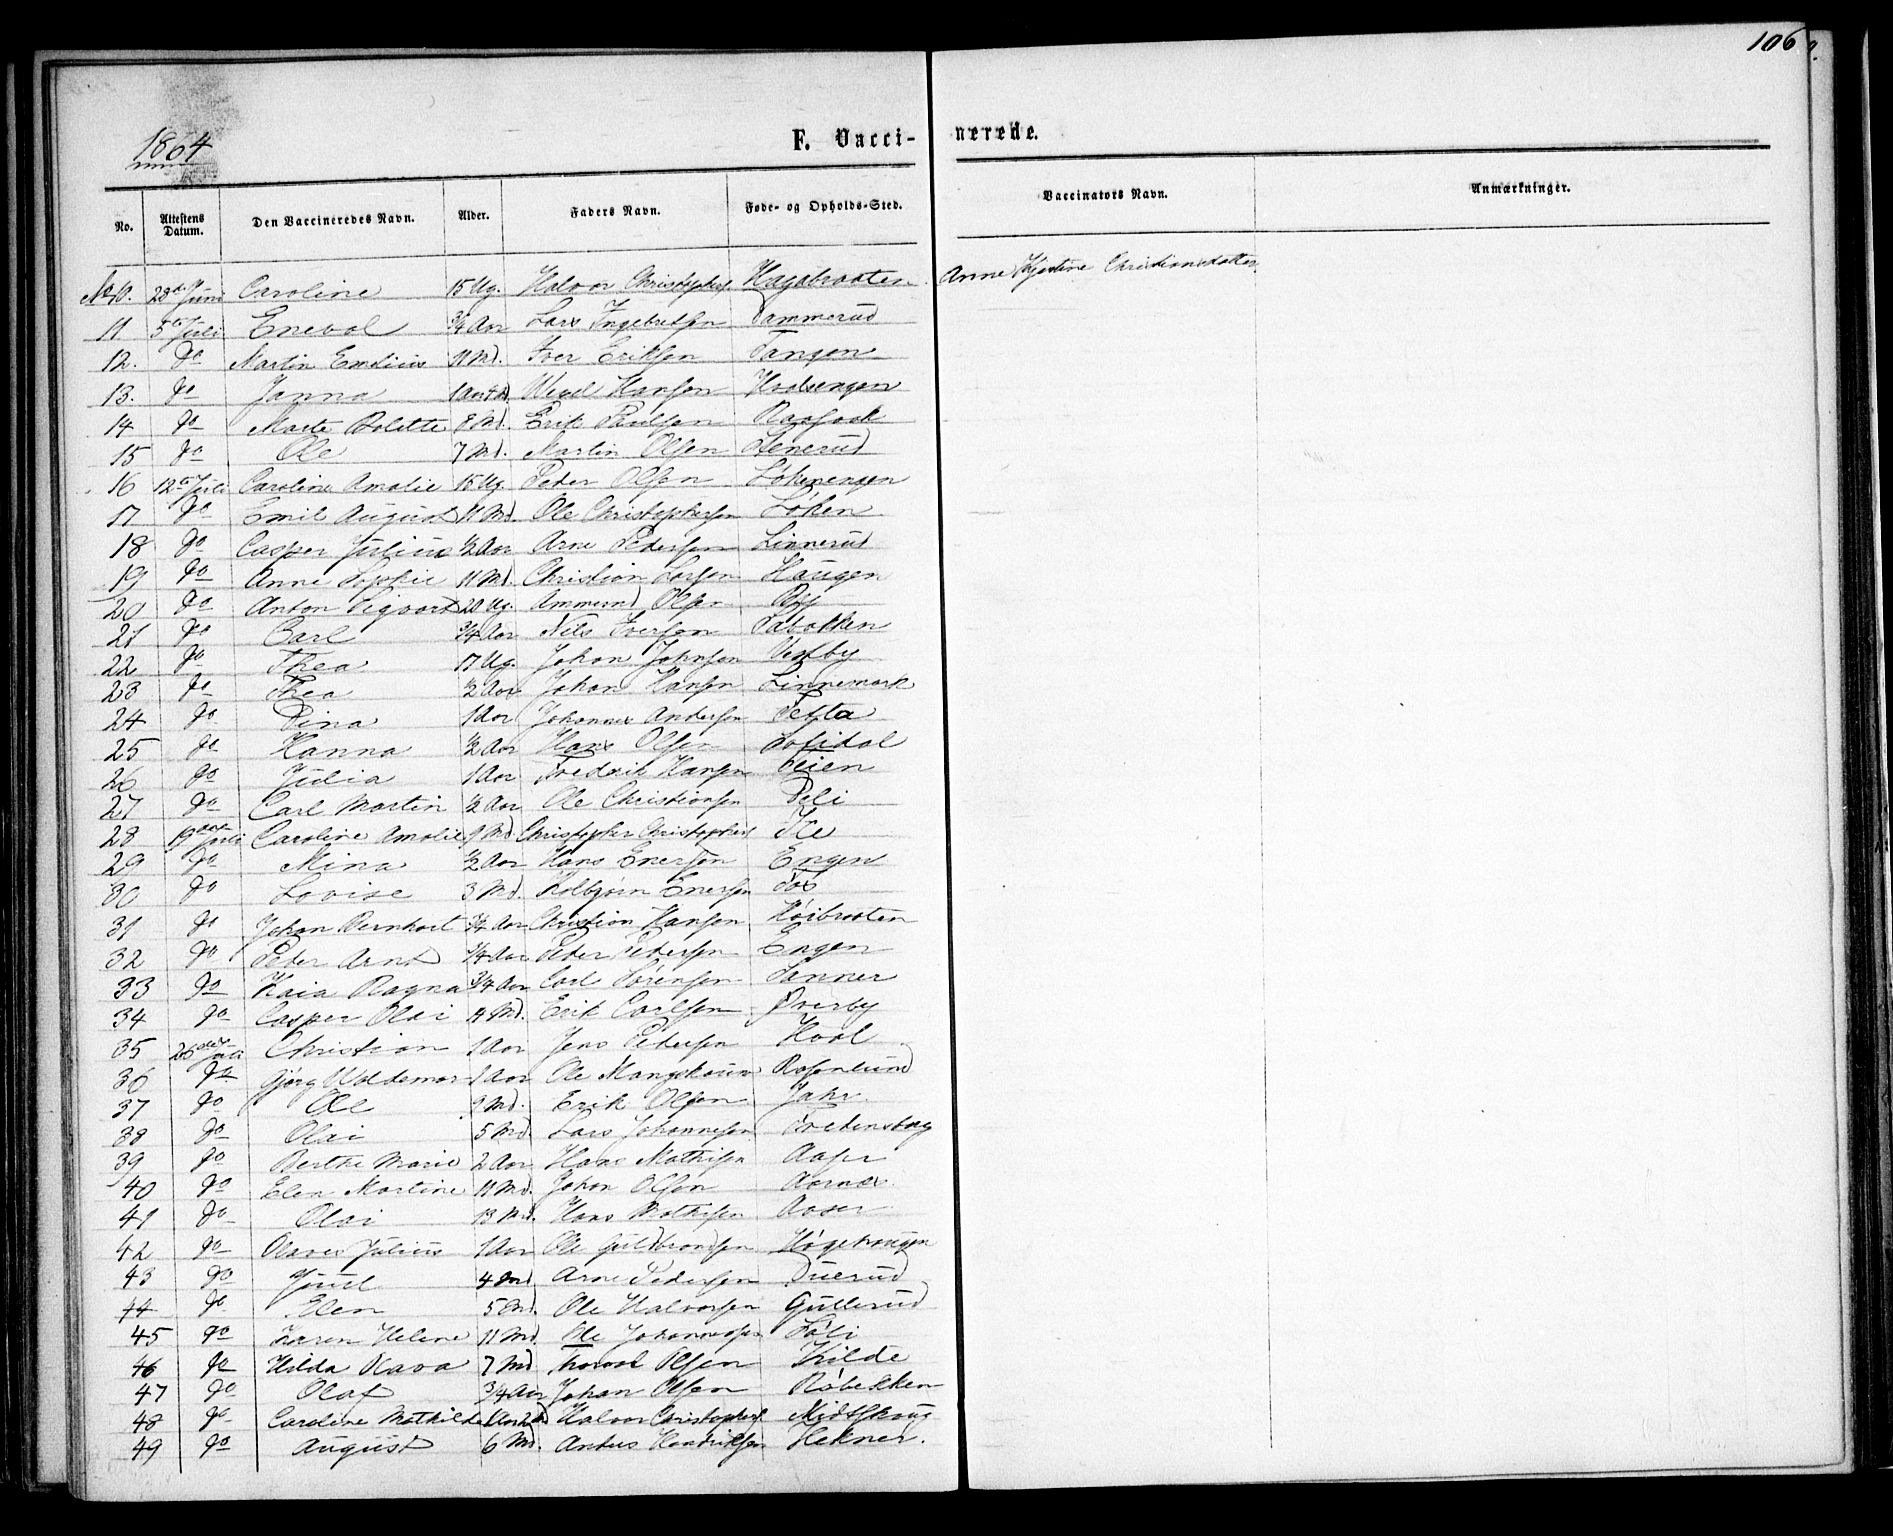 106
1864
F. Vacci-nerede.
No. Attestens Datum. Den Vaccineredes Navn. Alder. Faders Navn. Føde- og Opholds-Sted. Vaccinators Navn. Anmærkninger.
No 10. 28de Juni Caroline 15 Ug. Halvor Christophers. Hagabraaten Anne Kjestine Christiansdatter
11 5te Juli Enevol 3/4 Aar Lars Ingebretsen Tammerud
12. do Martin Emilius 11 Md. Iver Eriksen Tangen
13. do Janna 1 Aar Hansen Hvalsengen
14 do Marte Bolette 8 Md. Erik Paulsen
15 do Ole 7 Md. Martin Olsen Stenerud
16 12te Juli Caroline Amalie 15 Ug. Peder Olsen Løkenengen
17 do Emil August 11 Md. Ole Christophersen Løken
18 do Casper Julius 1/2 Aar Arne Pedersen Linnerud
19 do Anne Sophie 11 Md. Christian Larsen Haugen
20 do Anton Sigvart 20 Ug. Ammund Olsen By
21 do Carl 3/4 Aar Nils Iversen
22 do Thea 17 Ug. Johan Johnsen Vestby
23 do Thea 1/2 Aar Johan Hansen Linnemark
24 do Dina 1 Aar Johannes Andersen Tefta
25 do Hanna 1/2 Aar Hans Olsen
26 do Julia 1 Aar Fredrik Hansen
27 do Carl Martin 1/2 Aar Ole Christiansen
28 19de Juli Caroline Amalie 9 Md. Christopher Christophers.
29 do Mina 1/2 Aar Hans Enersen Engen
30 do Lovise 3 Md. Kolbjørn Enersen
31 do Johan Bernhart 3/4 Aar Christian Hansen Høibraaten
32 do Peder Arnt 1/4 Aar Peder Pedersen Engen
33 do Kaia Ragna 3/4 Aar Carl Sørensen Sanner
34 do Casper Olai 4 Md. Erik Carlsen Overby
35 26de Juli Christian 1 Aar Jens Pedersen Hval
36 do Gjørg Woldemar 1 Aar Ole Mangskaun Rosenlund
37 do Ole 9 Md. Erik Olsen Jahr.
38 do Olai 5 Md. Lars Johannesen Fredensborg
39 do Berthe Marie 2 Aar Hans Mathisen
40 do Elen Martine 11 Md. Johan Olsen Aarnæs
41 do Olai 13 Md. Hans Mathisen
42 do Olaves Julius 1 Aar Ole Guldbrandsen Høgehaugen
43 do Juul 4 Md Arne Pedersen Duerud
44 do Elen 5 Md. Ole Halvorsen Gullerud
45 do Karen Helene 11 Md. Ole Johannesen Løli
46 do Hilda Olava 7 Md Olsen Kilde
47 do Olaf 3/4 Aar Johan Olsen Røbekken
48 do Caroline Mathilde 1 Aar Halvor Christophers. Midtskaug
49 do August 6 Md. Anders Hendriksen Hekner.